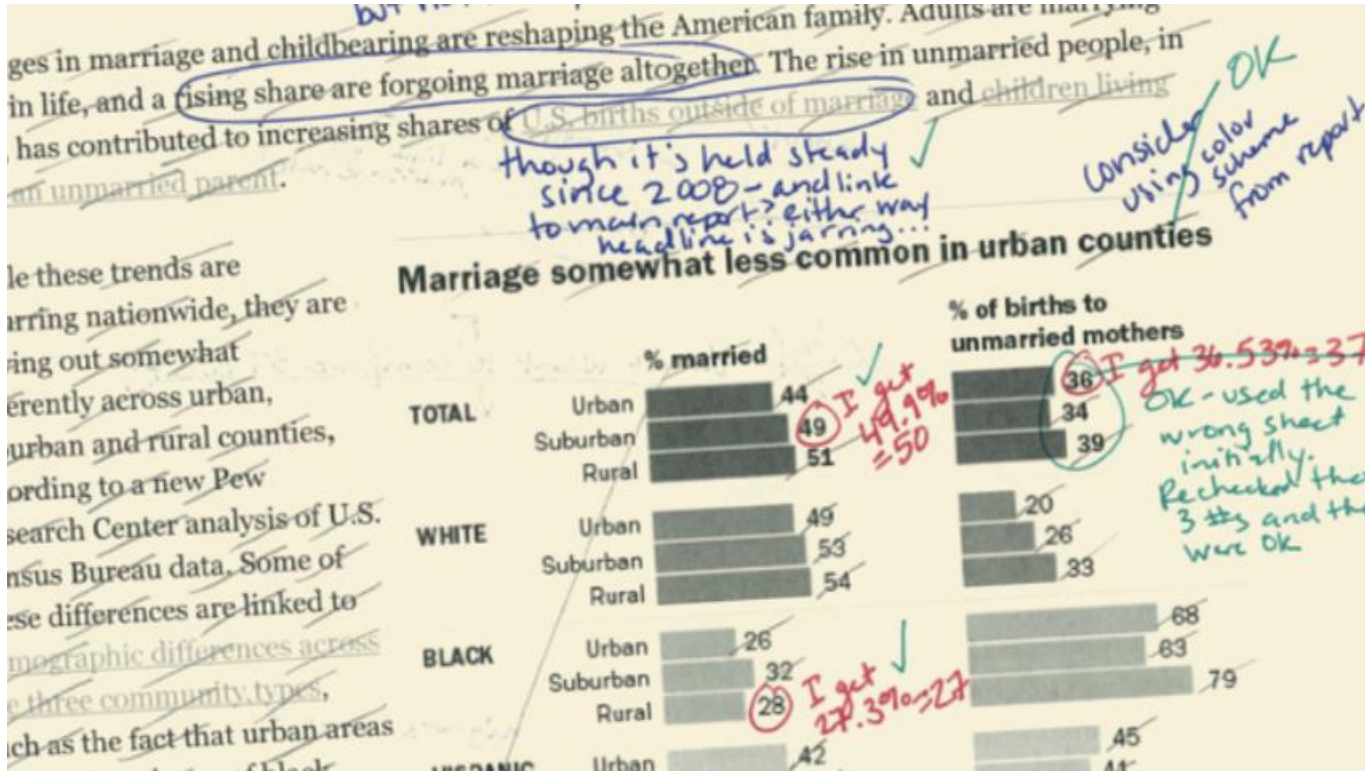 but
ges in marriage and childbearing are reshaping the American family. Adults are marrying
in life, and a rising share are forgoing marriage altogether. The rise in unmarried people, in
has contributed to increasing shares of U.S. births outside of marriage and children living
an unmarried parent.
though it's held steady
since 2008 - and link
to main report? either way
headline is jarring...
OK
consider
using color
scheme
from report
le these trends are
rring nationwide, they are
ing out somewhat
erently across urban,
urban and rural counties,
ording to a new Pew
search Center analysis of U.S.
nsus Bureau data. Some of
se differences are linked to
mographic differences across
e three community types,
ch as the fact that urban areas
of black
Marriage somewhat less common in urban counties
% married
% of births to
unmarried mothers
TOTAL
Urban 44 36
Suburban 49 34
Rural 51 39
I get
49.9%
=50
I get 36.53% = 37
OK - used the
wrong sheet
initially.
Rechecked the
3 #s and the
were OK
WHITE
Urban 49 20
Suburban 53 26
Rural 54 33
BLACK
Urban 26 68
Suburban 32 63
Rural 28 79
I get
27.3% = 27
HISPANIC
Urban 42 45
44